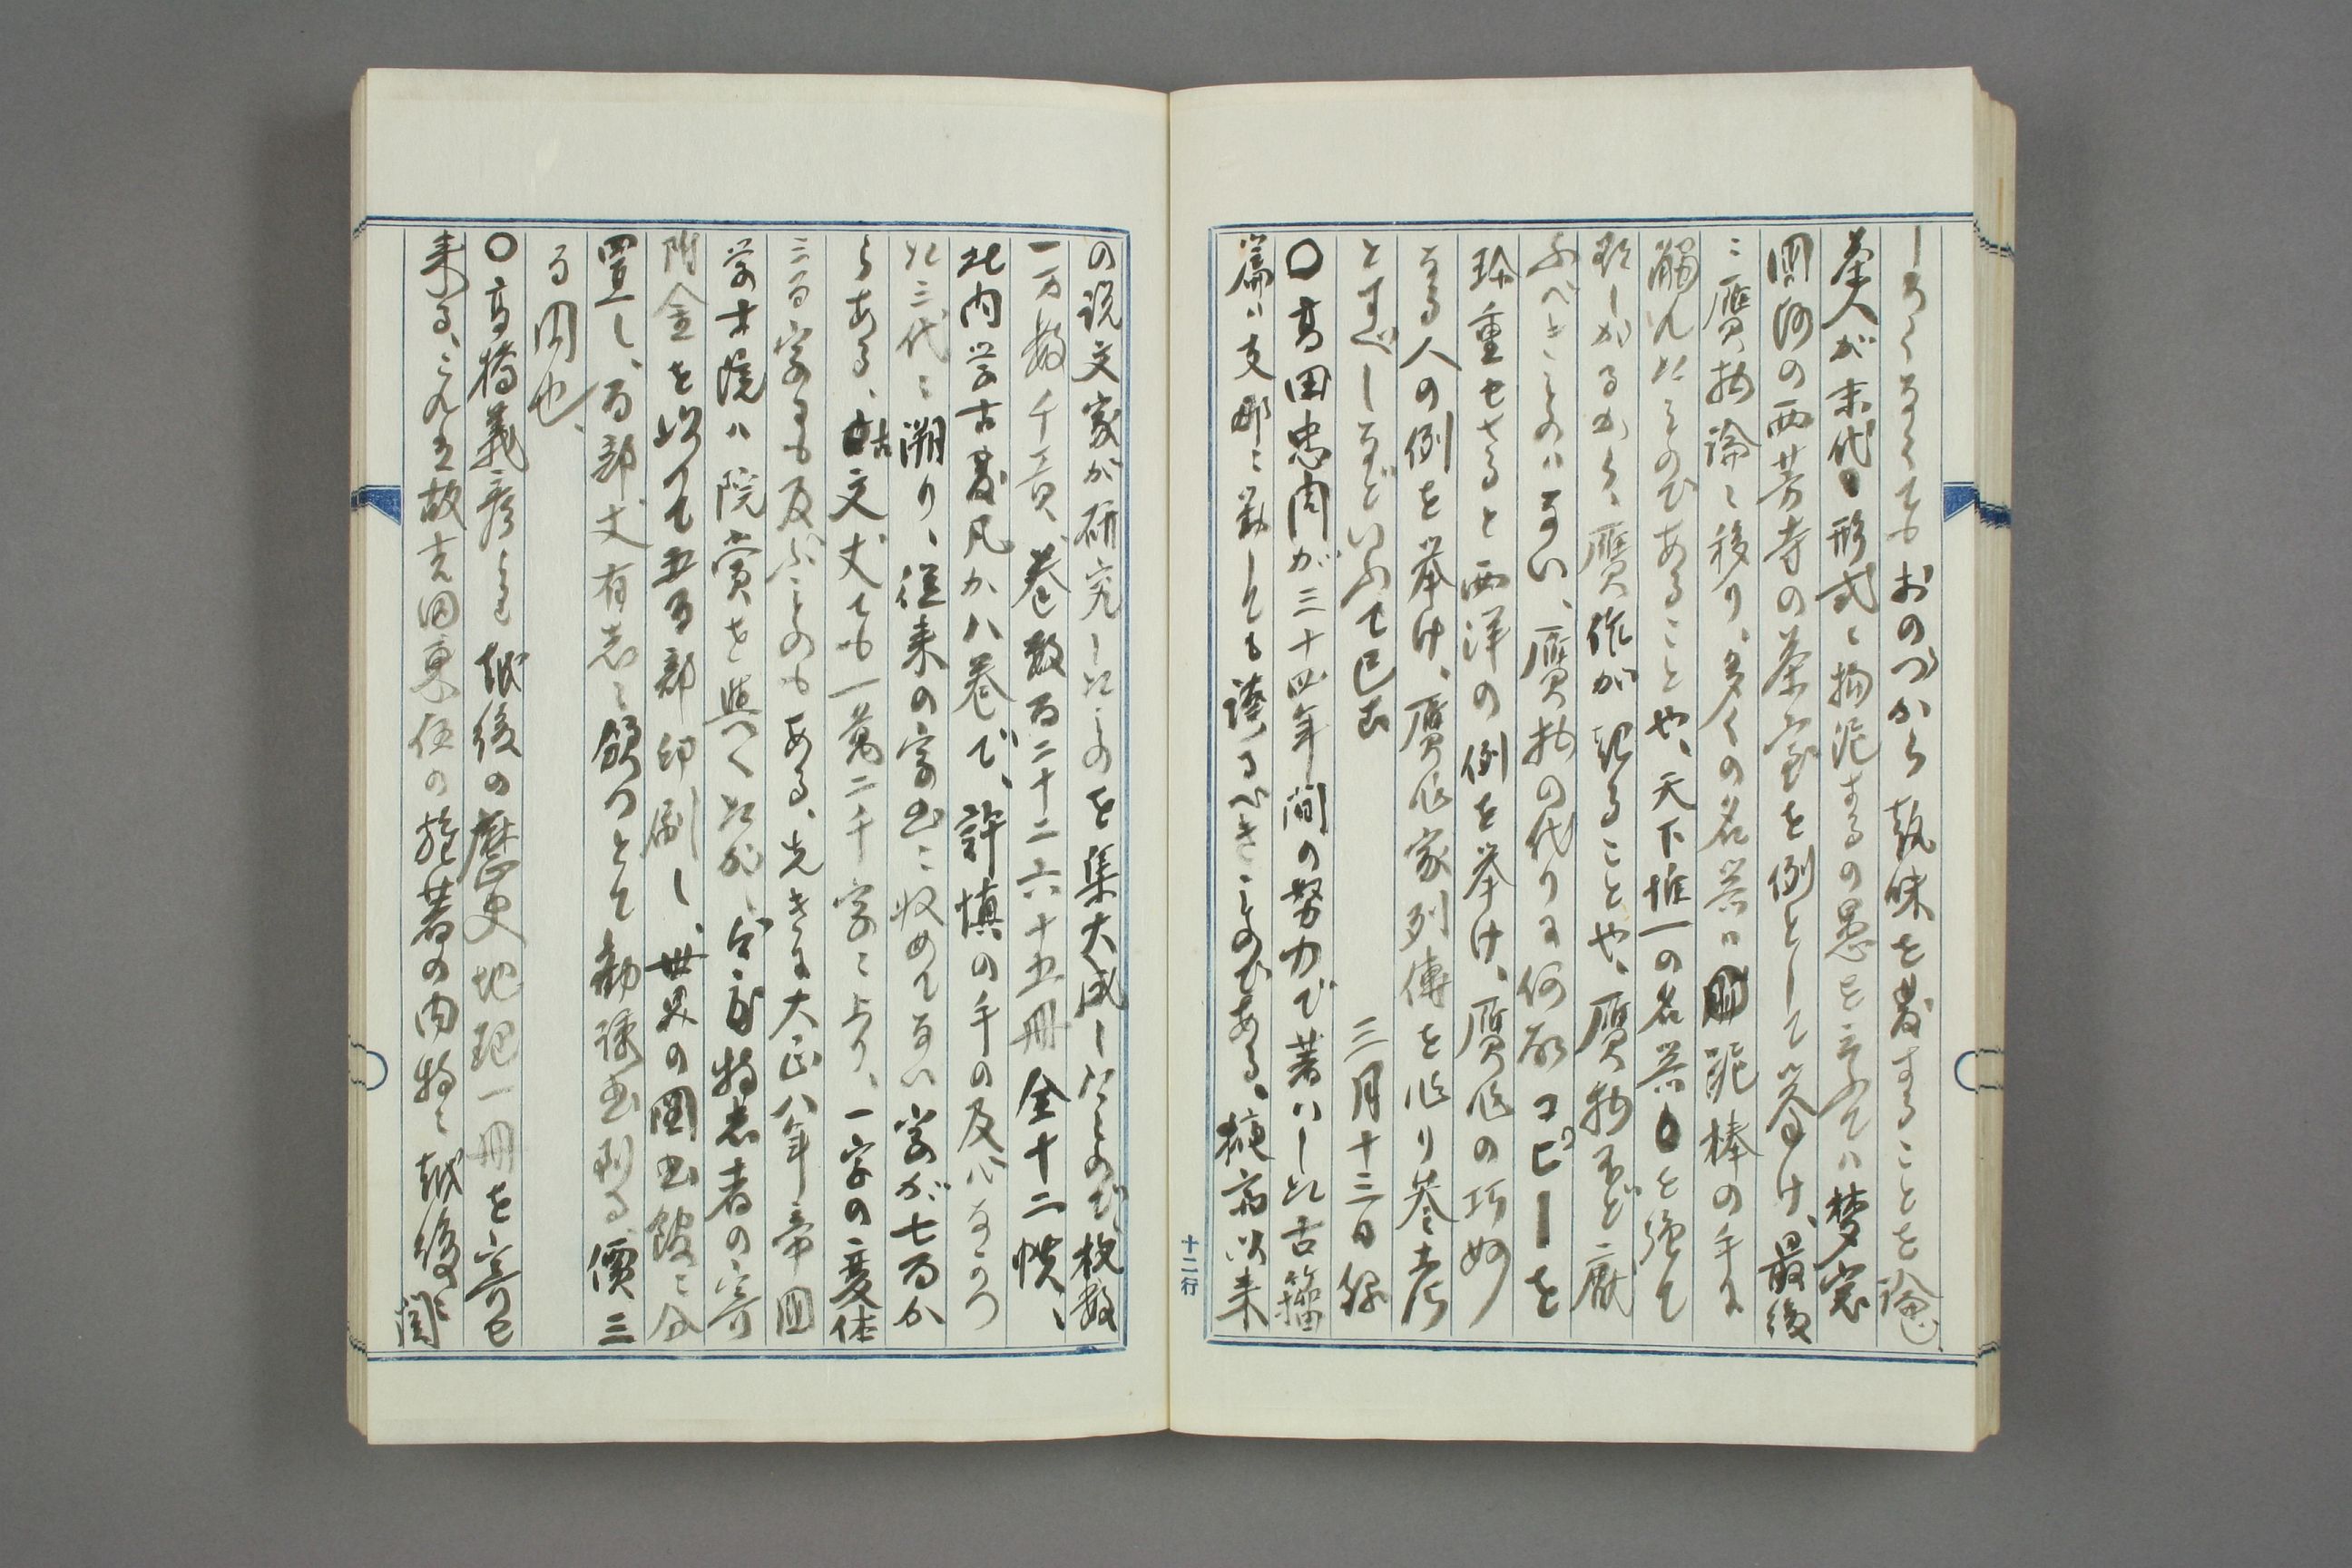 しろくなくてもおのづから趣味を発することを論じ
茶人が末代の形式に拘泥するの愚を云ふては夢窓
国師の西芳寺の茶室を例として挙げ、最後
に贋物論に移り、多くの名器は泥棒の手に
触れたものであることや、天下惟一の名器を強て
欲しがるから、贋作が起ることや、贋物ほど厭
ふべきものはない、贋物の代りに何故コピーを
珍重せざると西洋の例を挙げ、贋作の巧妙
なる人の例を挙げ、贋作家列傳を作り参考
とすべしなどいふて已む
三月十三日録
〇高田忠周が三十四年間の努力で著はした古籀
篇は支那に対しても誇るべきものである、漢以来
の説文家が研究したものを集大成したもので、枚数
一万数千頁、巻数百二十二六十五冊全十二帙、
此内学古発凡が八巻で、許慎の手の及ばなかつ
た三代に溯り、従来の字書に収めてない字が七百か
らある、文丈ても一萬二千字に上り、一字の変体
三百字にも及ぶものもある、先きに大正八年帝国
学士院は院賞を與へたが、今度特志者の寄
附金を以つて五百部印刷し、世界の図書館に分
置し、百部丈有志に頒つとて勧誘書到る、價三
百円也、
〇高橋義彦より越後の歴史地理一冊を寄せ
来る、これは故吉田東伍の旅著の内特に越後に関
十二行